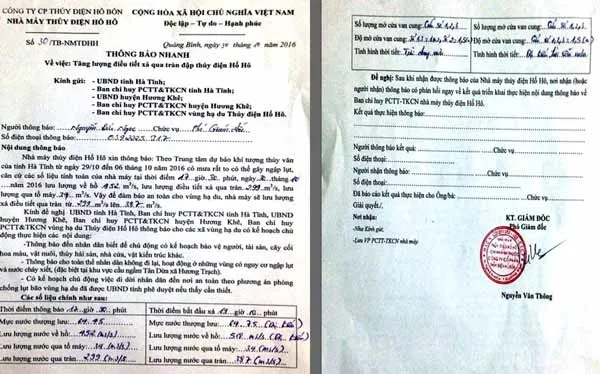 CÔNG TY CP THỦY ĐIỆN HỒ BỐN
NHÀ MÁY THỦY ĐIỆN HỐ HÔ
CỘNG HÒA XÃ HỘI CHỦ NGHĨA VIỆT NAM
Độc lập - Tự do - Hạnh phúc
Số 30/TB-NMTĐHH
Quảng Bình, ngày 30 tháng 10 năm 2016
THÔNG BÁO NHANH
Về việc: Tăng lượng điều tiết xả qua tràn đập thủy điện Hố Hô
Kính gửi: - UBND tỉnh Hà Tĩnh;
- Ban chỉ huy PCTT&TKCN tỉnh Hà Tĩnh;
- UBND huyện Hương Khê;
- Ban chỉ huy PCTT&TKCN huyện Hương Khê;
- Ban chỉ huy PCTT&TKCN vùng hạ du Thủy điện Hố Hô.
Người thông báo: Nguyễn Chức vụ
Số điện thoại thông báo:
Nội dung thông báo
Nhà máy thủy điện Hố Hô xin thông báo: Theo Trung tâm dự báo khí tượng thủy văn
của tỉnh Hà Tĩnh từ ngày 29/10 đến 06 tháng 10 năm 2016 có mưa rất to có thể gây ngập lụt,
căn cứ các số liệu tính toán của nhà máy tại thời điểm 17 giờ 30 phút, ngày 30 tháng 10
năm 2016 lưu lượng về hồ 452 m³/s, lưu lượng điều tiết xả qua tràn 299 m³/s, lưu
lượng qua tổ máy 34 m³/s. Vậy để đảm bảo an toàn cho vùng hạ du, nhà máy sẽ lưu lượng
xả điều tiết từ 299 m³/s lên 387 m³/s.
Kính đề nghị UBND tỉnh Hà Tĩnh, Ban chỉ huy PCTT&TKCN tỉnh Hà Tĩnh, UBND
huyện Hương Khê, Ban chỉ huy PCTT&TKCN huyện Hương Khê, Ban chỉ huy
PCTT&TKCN vùng hạ du Thủy điện Hố Hô thông báo cho các xã vùng hạ du có kế hoạch chủ
động thực hiện các nội dung:
- Thông báo đến nhân dân biết để chủ động có kế hoạch bảo vệ người, tài sản, cây cối
hoa màu, vật nuôi, thủy hải sản, nhà cửa, vật kiến trúc khác.
- Thông báo cho toàn thể nhân dân không đi lại, hoạt động ở những vùng có nguy cơ ngập lụt
và nước chảy xiết, (đặc biệt tại khu vực cầu ngầm Tân Dừa xã Hương Trạch).
- Có kế hoạch chủ động việc di dời nhân dân đến nơi an toàn theo phương án phòng
chống lụt bão vùng hạ du đã được UBND tỉnh phê duyệt nếu thấy cần thiết.
Các số liệu chính như sau:
Thời điểm thông báo 17 giờ 30 phút
Thời điểm bắt đầu xả 19 giờ 10 phút
Mực nước thượng lưu:
Mực nước thượng lưu: (Dự kiến)
Lưu lượng nước về hồ: 452 (m³/s)
Lưu lượng nước về hồ: (m³/s) (Dự kiến)
Lưu lượng nước qua tổ máy: 34 (m³/s)
Lưu lượng nước qua tổ máy: 34 (m³/s)
Lưu lượng nước qua tràn: 299 (m³/s)
Lưu lượng nước qua tràn: 387 (m³/s)
Số lượng mở cửa van cung: Cửa số 1,2,3
Số lượng mở cửa van cung: Cửa số 1,2,3
Độ mở cửa van cung:
Độ mở cửa van cung:
Tình hình thời tiết:
Tình hình thời tiết:
Đề nghị: Sau khi nhận được thông báo của Nhà máy thủy điện Hố Hô, nơi nhận (hoặc
người nhận) thông báo có phản hồi ngay về kết quả triển khai thực hiện nội dung thông báo về
Ban chỉ huy PCTT-TKCN nhà máy thủy điện Hố Hô.
Kết quả thực hiện thông báo:
Người thông báo kết quả: Chức vụ
Số điện thoại:
Người nhận thông báo: Chức vụ
Số điện thoại:
Đã báo cáo kết quả thực hiện cho Ông/bà: Chức vụ
Giải quyết/.
Nơi nhận:
- Như Kính gửi,
- Lưu VP PCTT-TKCN nhà máy
KT. GIÁM ĐỐC
Phó Giám đốc
Nguyễn Văn Thông